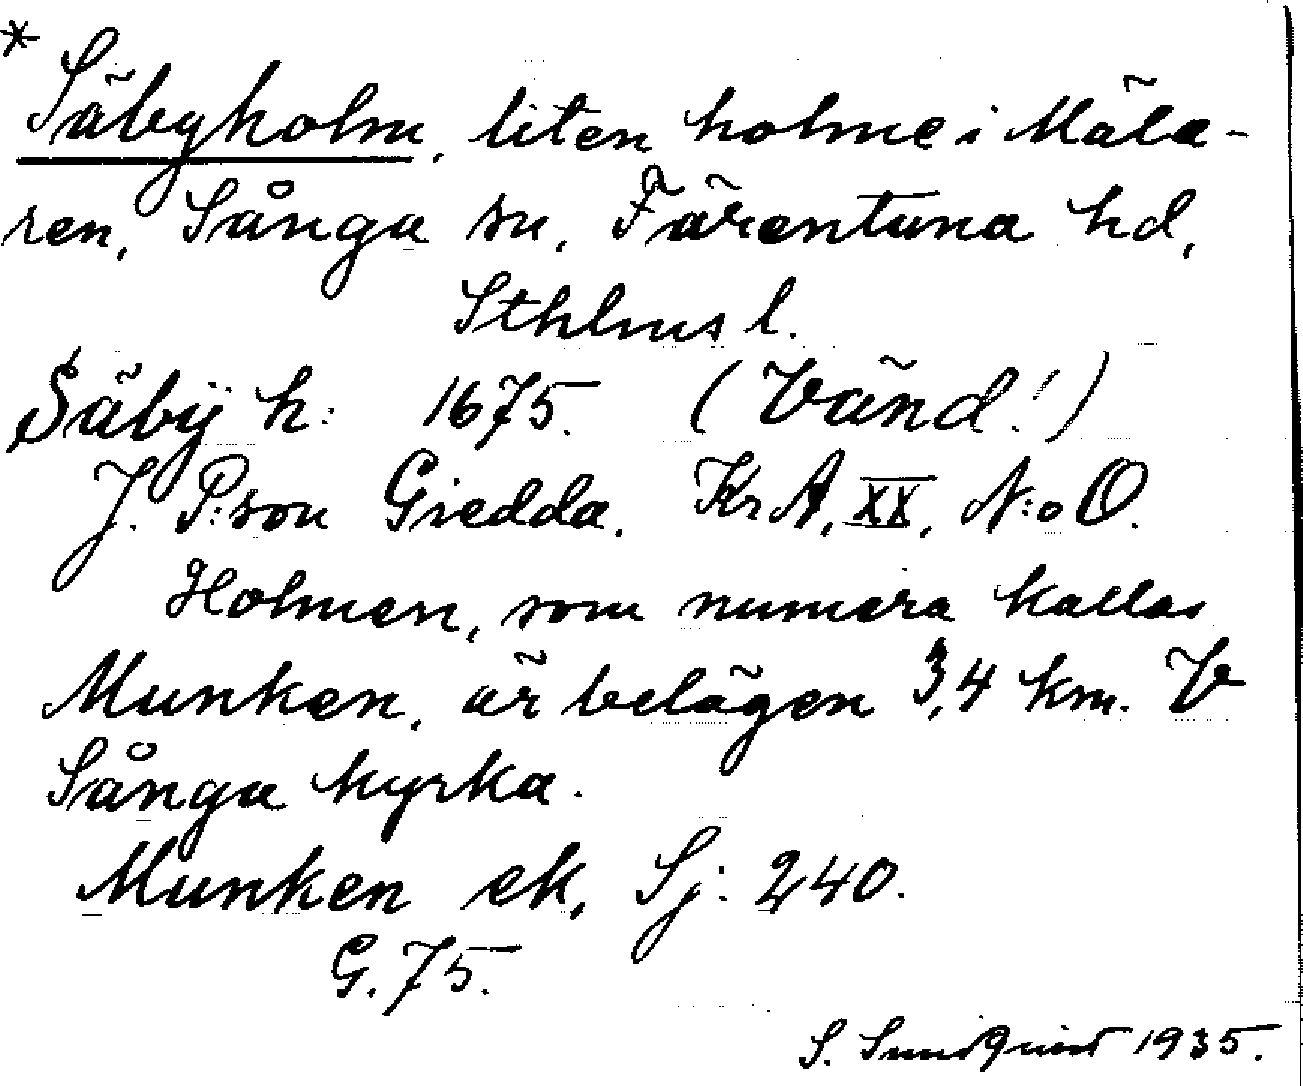 * Säbyholm, liten holme i Mäla-
ren, Sånga sn, Färentuna hd,
Sthlms l.
Säbÿ h: 1675. (Vänd!)
J. P:son Giedda. KrA, XX, N:o O.
Holmen, som numera kallas
Munken, är belägen 3,4 km. V
Sånga kyrka.
Munken ek, Sj: 240.
G. 75.
S. Sundquist 1935.